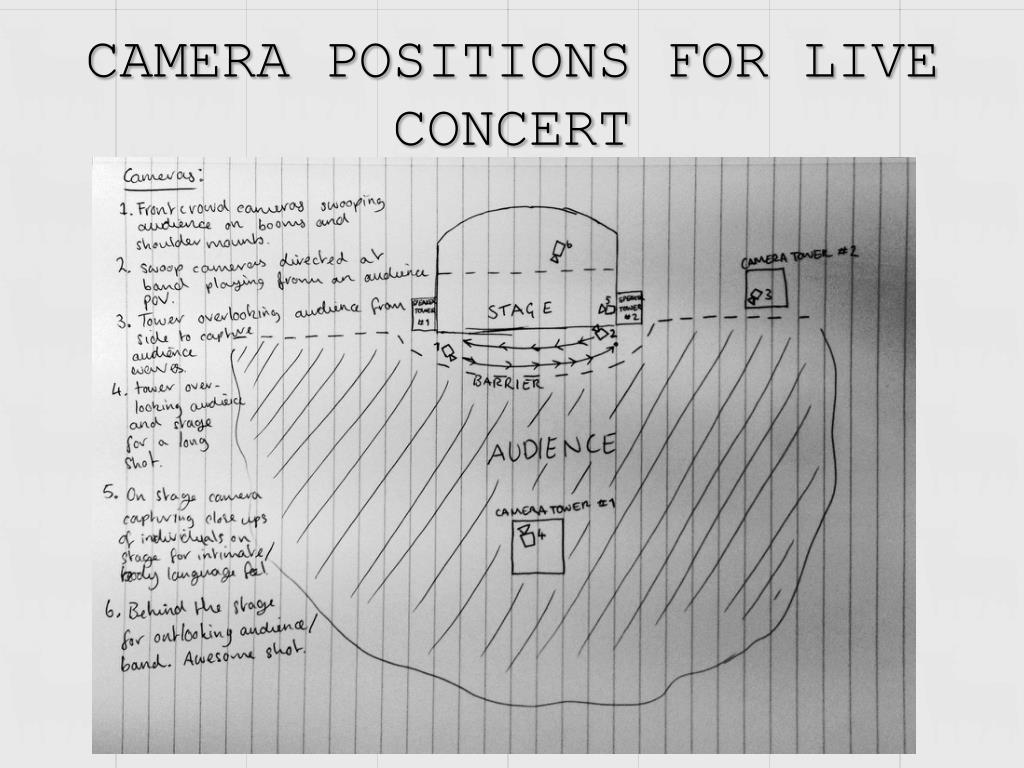 CAMERA POSITIONS FOR LIVE
CONCERT
Cameras:
1. Front crowd cameras swooping
audience on booms and
shoulder mounts.
2. swoop cameras directed at
band playing from an audience
pov.
3. Tower overlooking audience from
side to capture
audience
waves.
4. tower over-
looking audience
and stage
for a long
shot.
5. On stage camera
capturing close ups
of individuals on
stage for intimate/
body language feel
6. Behind the stage
for outlooking audience/
band. Awesome shot.
6
CAMERA TOWER #2
3
SPEAKER
TOWER
#1
STAGE
5
SPEAKER
TOWER
#2
2
1
BARRIER
AUDIENCE
CAMERA TOWER #1
4